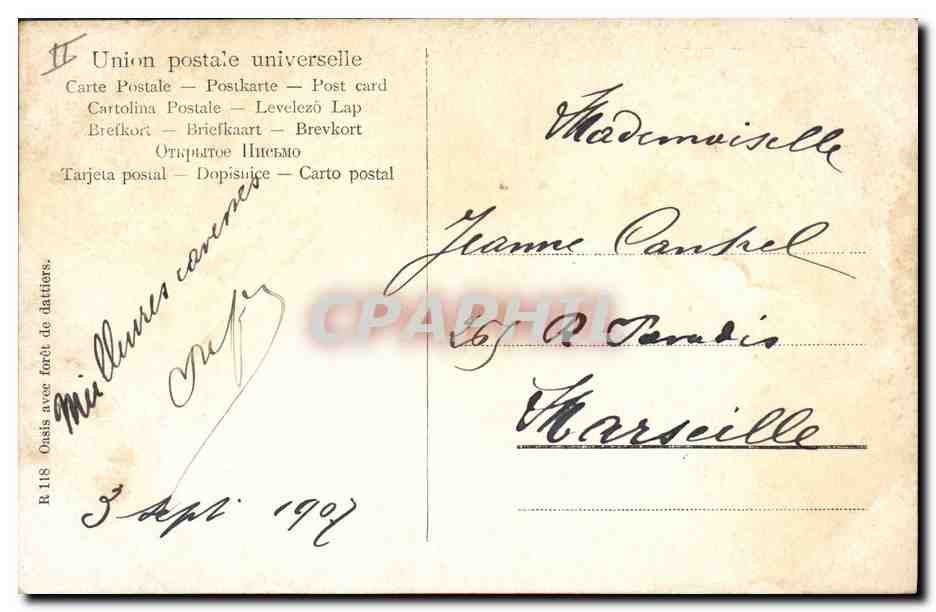 II
Union postale universelle
Carte Postale — Postkarte — Post card
Cartolina Postale — Levelező Lap
Brefkort — Briefkaart — Brevkort
Открытое Письмо
Tarjeta postal — Dopisnice — Carto postal
Meilleures caresses
3 sept 1907
R 118 Oasis avec forêt de dattiers.
Mademoiselle
Jeanne
265 R Paradis
Marseille
CPAPHIL